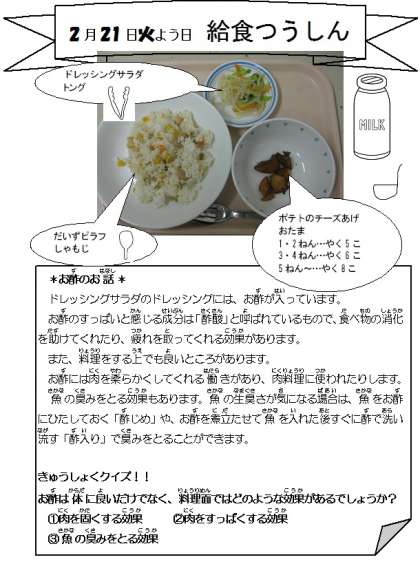 2月21日火よう日　給食つうしん
ドレッシングサラダ
トング
MILK
だいずピラフ
しゃもじ
ポテトのチーズあげ
おたま
1・2ねん…やく5こ
3・4ねん…やく6こ
5ねん～…やく8こ
＊お酢のお話＊
ドレッシングサラダのドレッシングには、お酢が入っています。
お酢のすっぱいと感じる成分は「酢酸」と呼ばれているもので、食べ物の消化
を助けてくれたり、疲れを取ってくれる効果があります。
また、料理をする上でも良いところがあります。
お酢には肉を柔らかくしてくれる働きがあり、肉料理に使われたりします。
魚の臭みをとる効果もあります。魚の生臭さが気になる場合は、魚をお酢
にひたしておく「酢じめ」や、お酢を煮立たせて魚を入れた後すぐに酢で洗い
流す「酢入り」で臭みをとることができます。
きゅうしょくクイズ！！
お酢は体に良いだけでなく、料理面ではどのような効果があるでしょうか？
①肉を固くする効果　②肉をすっぱくする効果
③魚の臭みをとる効果